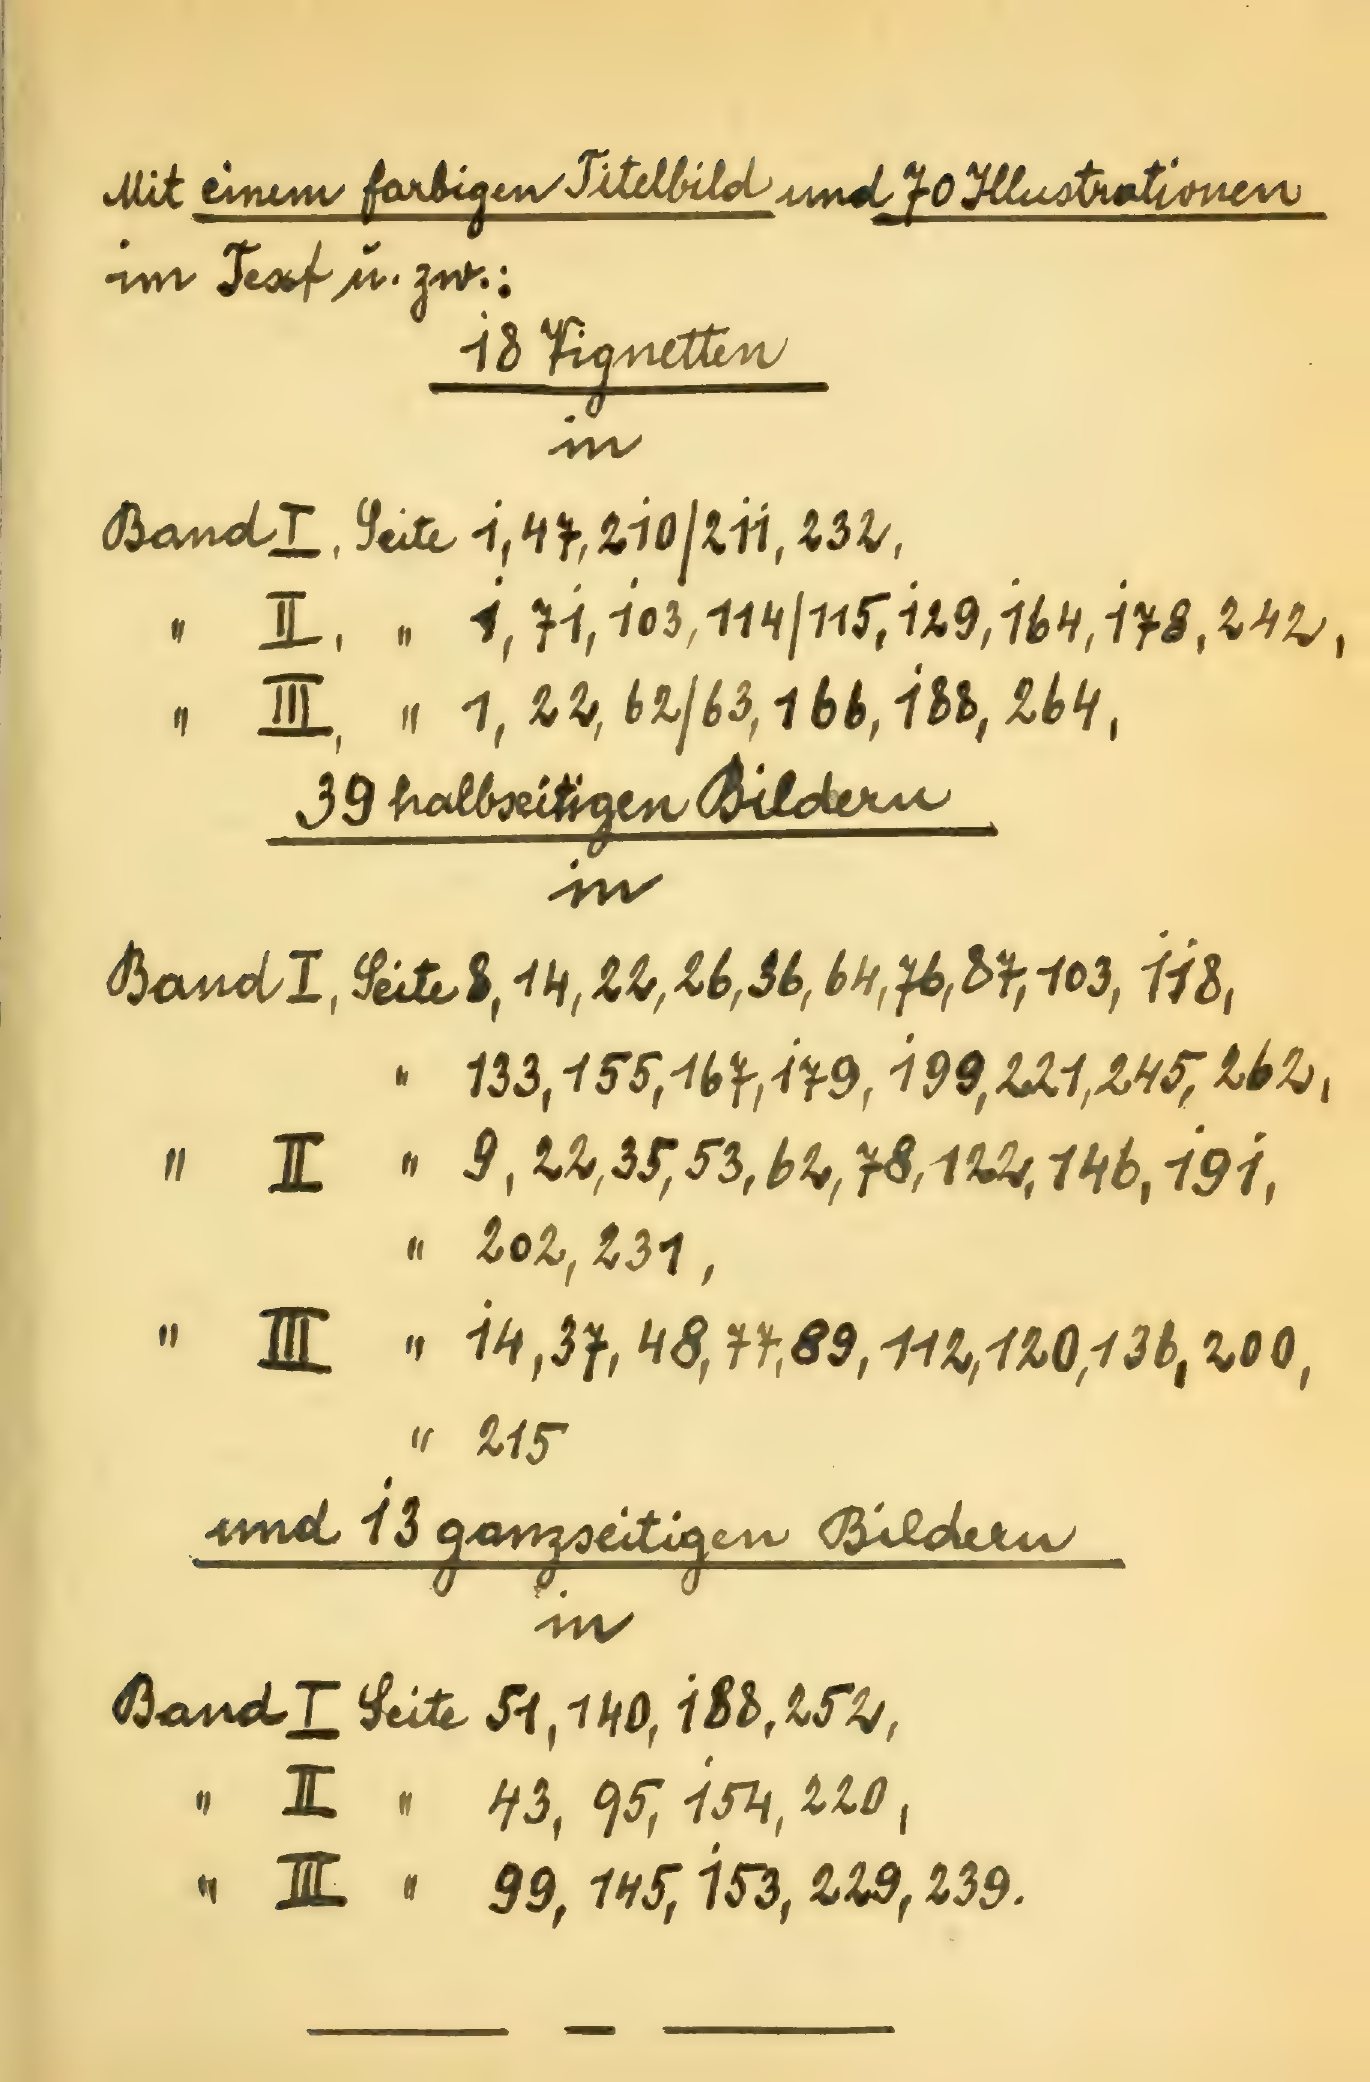 Mit einem farbigen Titelbild und 70 Illustrationen
im Text u. zw.:
18 Vignetten
in
Band I, Seite 1, 47, 210/211, 232,
" II, " 1, 71, 103, 114/115, 129, 164, 178, 242,
" III, " 1, 22, 62/63, 166, 188, 264,
39 halbseitigen Bildern
in
Band I, Seite 8, 14, 22, 26, 36, 64, 76, 87, 103, 118,
" 133, 155, 167, 179, 199, 221, 245, 262,
" II " 9, 22, 35, 53, 62, 78, 122, 146, 191,
" 202, 231,
" III " 14, 37, 48, 77, 89, 112, 120, 136, 200,
" 215
und 13 ganzseitigen Bildern
in
Band I Seite 51, 140, 188, 252,
" II " 43, 95, 154, 220,
" III " 99, 145, 153, 229, 239.